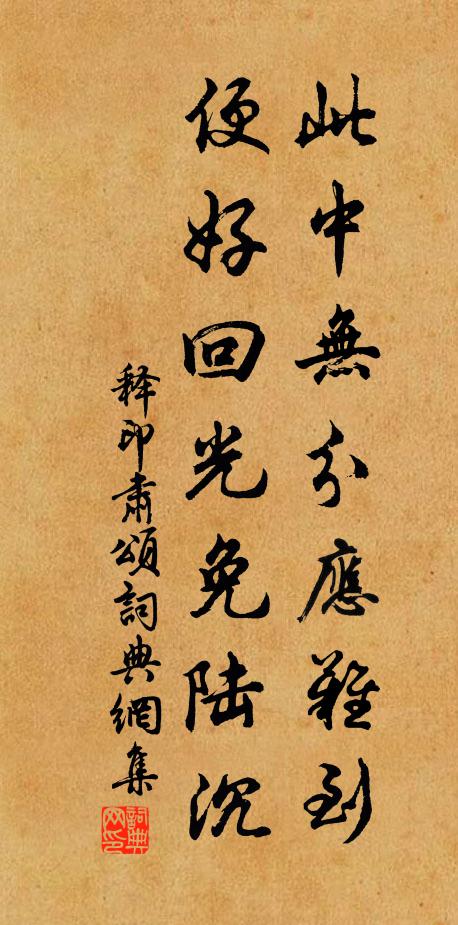 此中無分應難到
便好回光免陆沉
释印肅頌詞典網集
詞典网印